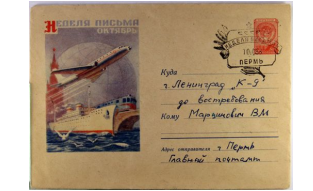 НЕДЕЛЯ ПИСЬМА
ОКТЯБРЬ
ПЕРМЬ
Куда
г. Ленинград "К-9"
до востребования
Кому Марцинович В М
Адрес отправителя г Пермь
Главный почтамт